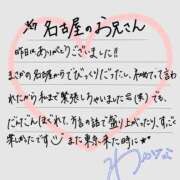 名古屋のお兄さん
昨日はありがとうございました!!
まさかの名古屋からでびっくりだったし、初めてって言わ
れたから私まで緊張しちゃいました(笑)でも、
だんだんほぐれて、方言の話で盛り上がったり、すごく
楽しかったです また東京来た時に★